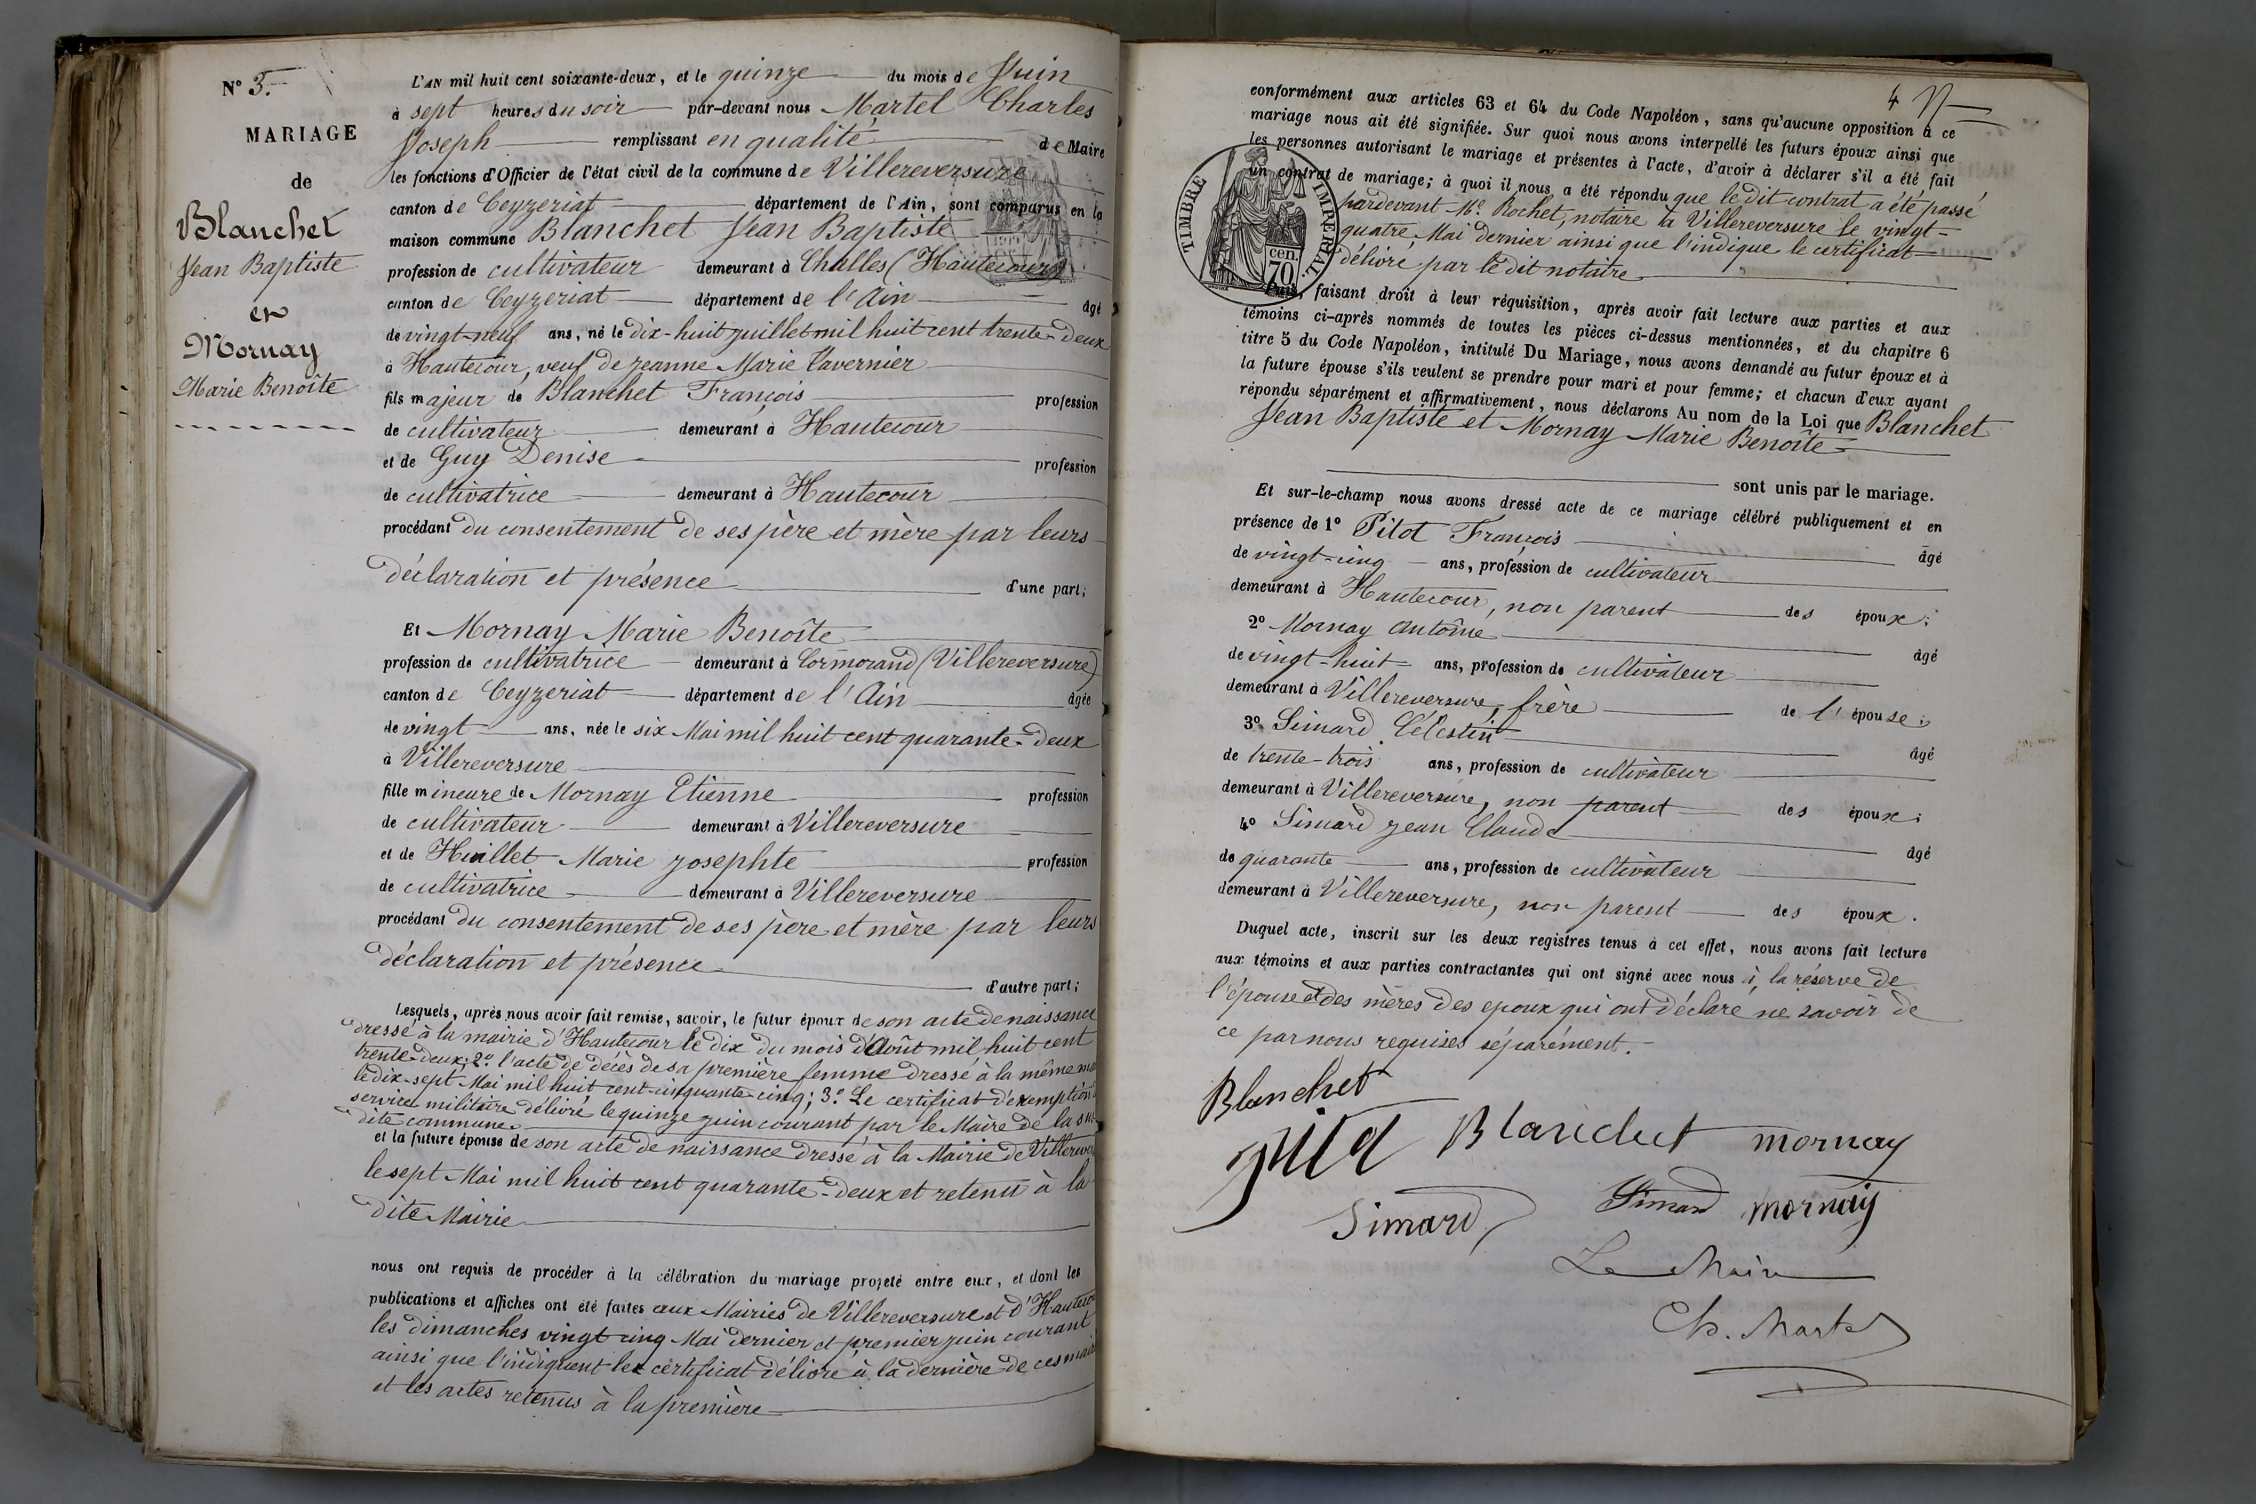 N° 3.
MARIAGE
de
Blanchet
Jean Baptiste
et
Mornay
Marie Benoîte
L'AN mil huit cent soixante-deux, et le quinze du mois de Juin
à sept heures du soir par-devant nous Martel Charles
Joseph remplissant en qualité de Maire
les fonctions d'Officier de l'état civil de la commune de Villereversure
canton de Ceyzeriat département de l'Ain, sont comparus en la
maison commune Blanchet Jean Baptiste
profession de cultivateur demeurant à Challes (Hautecour)
canton de Ceyzeriat département de l'Ain âgé
de vingt-neuf ans, né le dix-huit juillet mil huit cent trente-deux
à Hautecour, veuf de Jeanne Marie Tavernier
fils majeur de Blanchet François profession
de cultivateur demeurant à Hautecour
et de Guy Denise profession
de cultivatrice demeurant à Hautecour
procédant du consentement de ses père et mère par leurs
déclaration et présence d'une part;
Et Mornay Marie Benoîte
profession de cultivatrice demeurant à Cormorand (Villereversure)
canton de Ceyzeriat département de l'Ain âgée
de vingt ans, née le six Mai mil huit cent quarante-deux
à Villereversure
fille mineure de Mornay Etienne profession
de cultivateur demeurant à Villereversure
et de Huillet Marie Josephte profession
de cultivatrice demeurant à Villereversure
procédant du consentement de ses père et mère par leurs
déclaration et présence d'autre part;
Lesquels, après nous avoir fait remise, savoir, le futur époux de son acte de naissance
dressé à la mairie d'Hautecour le dix du mois d'Août mil huit cent
trente-deux; 2° l'acte de décès de sa première femme dressé à la même
le dix-sept Mai mil huit cent cinquante-cinq; 3° Le certificat d'exemption
service militaire délivré le quinze juin courant par le Maire de la sus
dite commune.
et la future épouse de son acte de naissance dressé à la Mairie de Villerever
le sept Mai mil huit cent quarante-deux et retenu à la
dite Mairie
nous ont requis de procéder à la célébration du mariage projeté entre eux, et dont les
publications et affiches ont été faites aux Mairies de Villereversure et d'Hauteco
les dimanches vingt-cinq Mai dernier et premier juin courant
ainsi que l'indiquent le certificat délivré à la dernière de ces mairi
et les actes retenus à la première
4
conformément aux articles 63 et 64 du Code Napoléon, sans qu'aucune opposition à ce
mariage nous ait été signifiée. Sur quoi nous avons interpellé les futurs époux ainsi que
les personnes autorisant le mariage et présentes à l'acte, d'avoir à déclarer s'il a été fait
un contrat de mariage; à quoi il nous a été répondu que le dit contrat a été passé
pardevant Me. Rochet, notaire à Villereversure le vingt-
quatre Mai dernier ainsi que l'indique le certificat
délivré par le dit notaire
TIMBRE IMPÉRIAL.
70 cen.
Puis, faisant droit à leur réquisition, après avoir fait lecture aux parties et aux
témoins ci-après nommés de toutes les pièces ci-dessus mentionnées, et du chapitre 6
titre 5 du Code Napoléon, intitulé Du Mariage, nous avons demandé au futur époux et à
la future épouse s'ils veulent se prendre pour mari et pour femme; et chacun d'eux ayant
répondu séparément et affirmativement, nous déclarons Au nom de la Loi que Blanchet
Jean Baptiste et Mornay Marie Benoîte
sont unis par le mariage.
Et sur-le-champ nous avons dressé acte de ce mariage célébré publiquement et en
présence de 1° Pitot François âgé
de vingt-cinq ans, profession de cultivateur
demeurant à Hautecour, non parent des époux;
2° Mornay Antoine âgé
de vingt-huit ans, profession de cultivateur
demeurant à Villereversure, frère de l'épouse;
3° Simard Célestin âgé
de trente-trois ans, profession de cultivateur
demeurant à Villereversure, non parent des époux;
4° Simard Jean Claude âgé
de quarante ans, profession de cultivateur
demeurant à Villereversure, non parent des époux.
Duquel acte, inscrit sur les deux registres tenus à cet effet, nous avons fait lecture
aux témoins et aux parties contractantes qui ont signé avec nous à la réserve de
l'épouse et des mères des epoux qui ont déclaré ne savoir de
ce par nous requises séparément.
Blanchet
Blanchet mornay
Simard Simard mornay
Le Maire
Ch. Martel